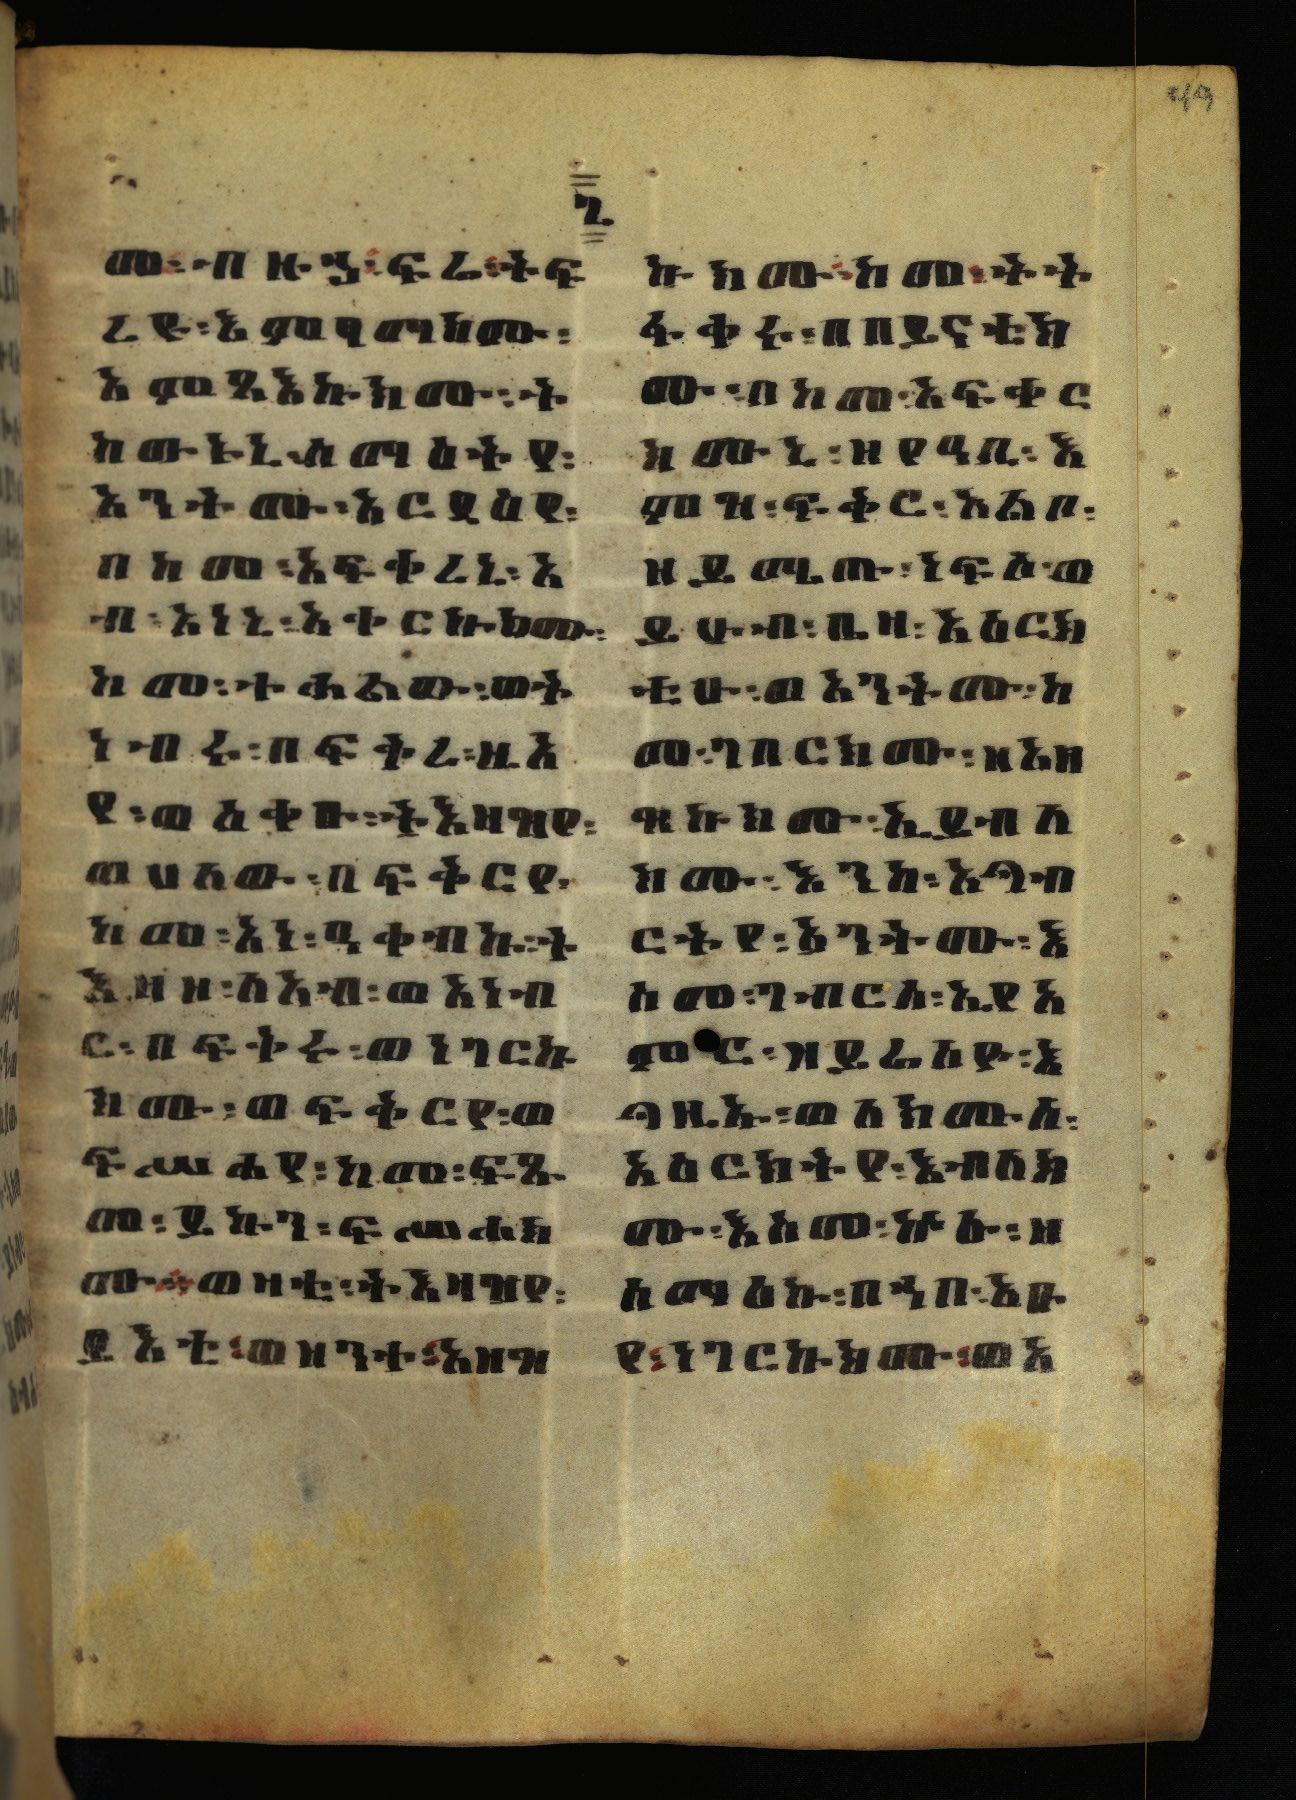 መ፡ብዙኃ፡ፍሬ፡ትፍ
ረዩ፡
እምጻእኩክሙ፡ት
ከውኑኒ፡ሰማዕትየ፡
አንትሙ፡አርዳዕየ፡
በከመ፡አፍቀረኒ፡አ
ብ፡አነኒ፡አቀርኩክሙ፡
ከመ፡ተሐልው፡ወት
ነብሩ፡በፍቅረ፡ዚአ
የ፡ወለቀቡ፡ትእዛዝየ፡
ወሀለው፡በፍቅርየ፡
ከመ፡አነ፡ዓቀብኩ፡ት
እዛዘ፡ለአብ፡ወእነብ
ር፡በፍቅሩ፡ወነገርኩ
ክሙ፡ወፍቅርየ፡ወ
ፍሥሐየ፡ከመ፡ፍጹ
መ፡ይኩን፡ፍሥሐክ
ሙ፡ወዛቲ፡ትእዛዝየ፡
ይእቲ፡ወዘንተ፡አዘዝ
ኩክሙ፡ከመ፡ትት
ፋቀሩ፡በበይናቲክ
ሙ፡በከመ፡አፍቀር
ክሙኒ፡ዘየዓቢ፡እ
ምዝ፡ፍቅር፡አልቦ፡
ዘይሜጡ፡ነፍሰ፡ወ
ይሁብ፡ቤዛ፡አዕርክ
ቲሁ፡ወአንትሙ፡ከ
መ፡ገበርክሙ፡ዘአዘ
ዝኩክሙ፡ኢይብለ
ክሙ፡እንከ፡አግብ
ርትየ፡አንትሙ፡እ
ስመ፡ገብርሰ፡ኢየአ
ምር፡ዝይሬስዮ፡እ
ግዚኡ፡ወለክሙሰ፡
አዕርክትየ፡እብለክ
ሙ፡እስመ፡ኵሎ፡ዘ
ሰማዕኩ፡በኀበ፡አቡ
የ፡ነገርኩክሙ፡ወአ